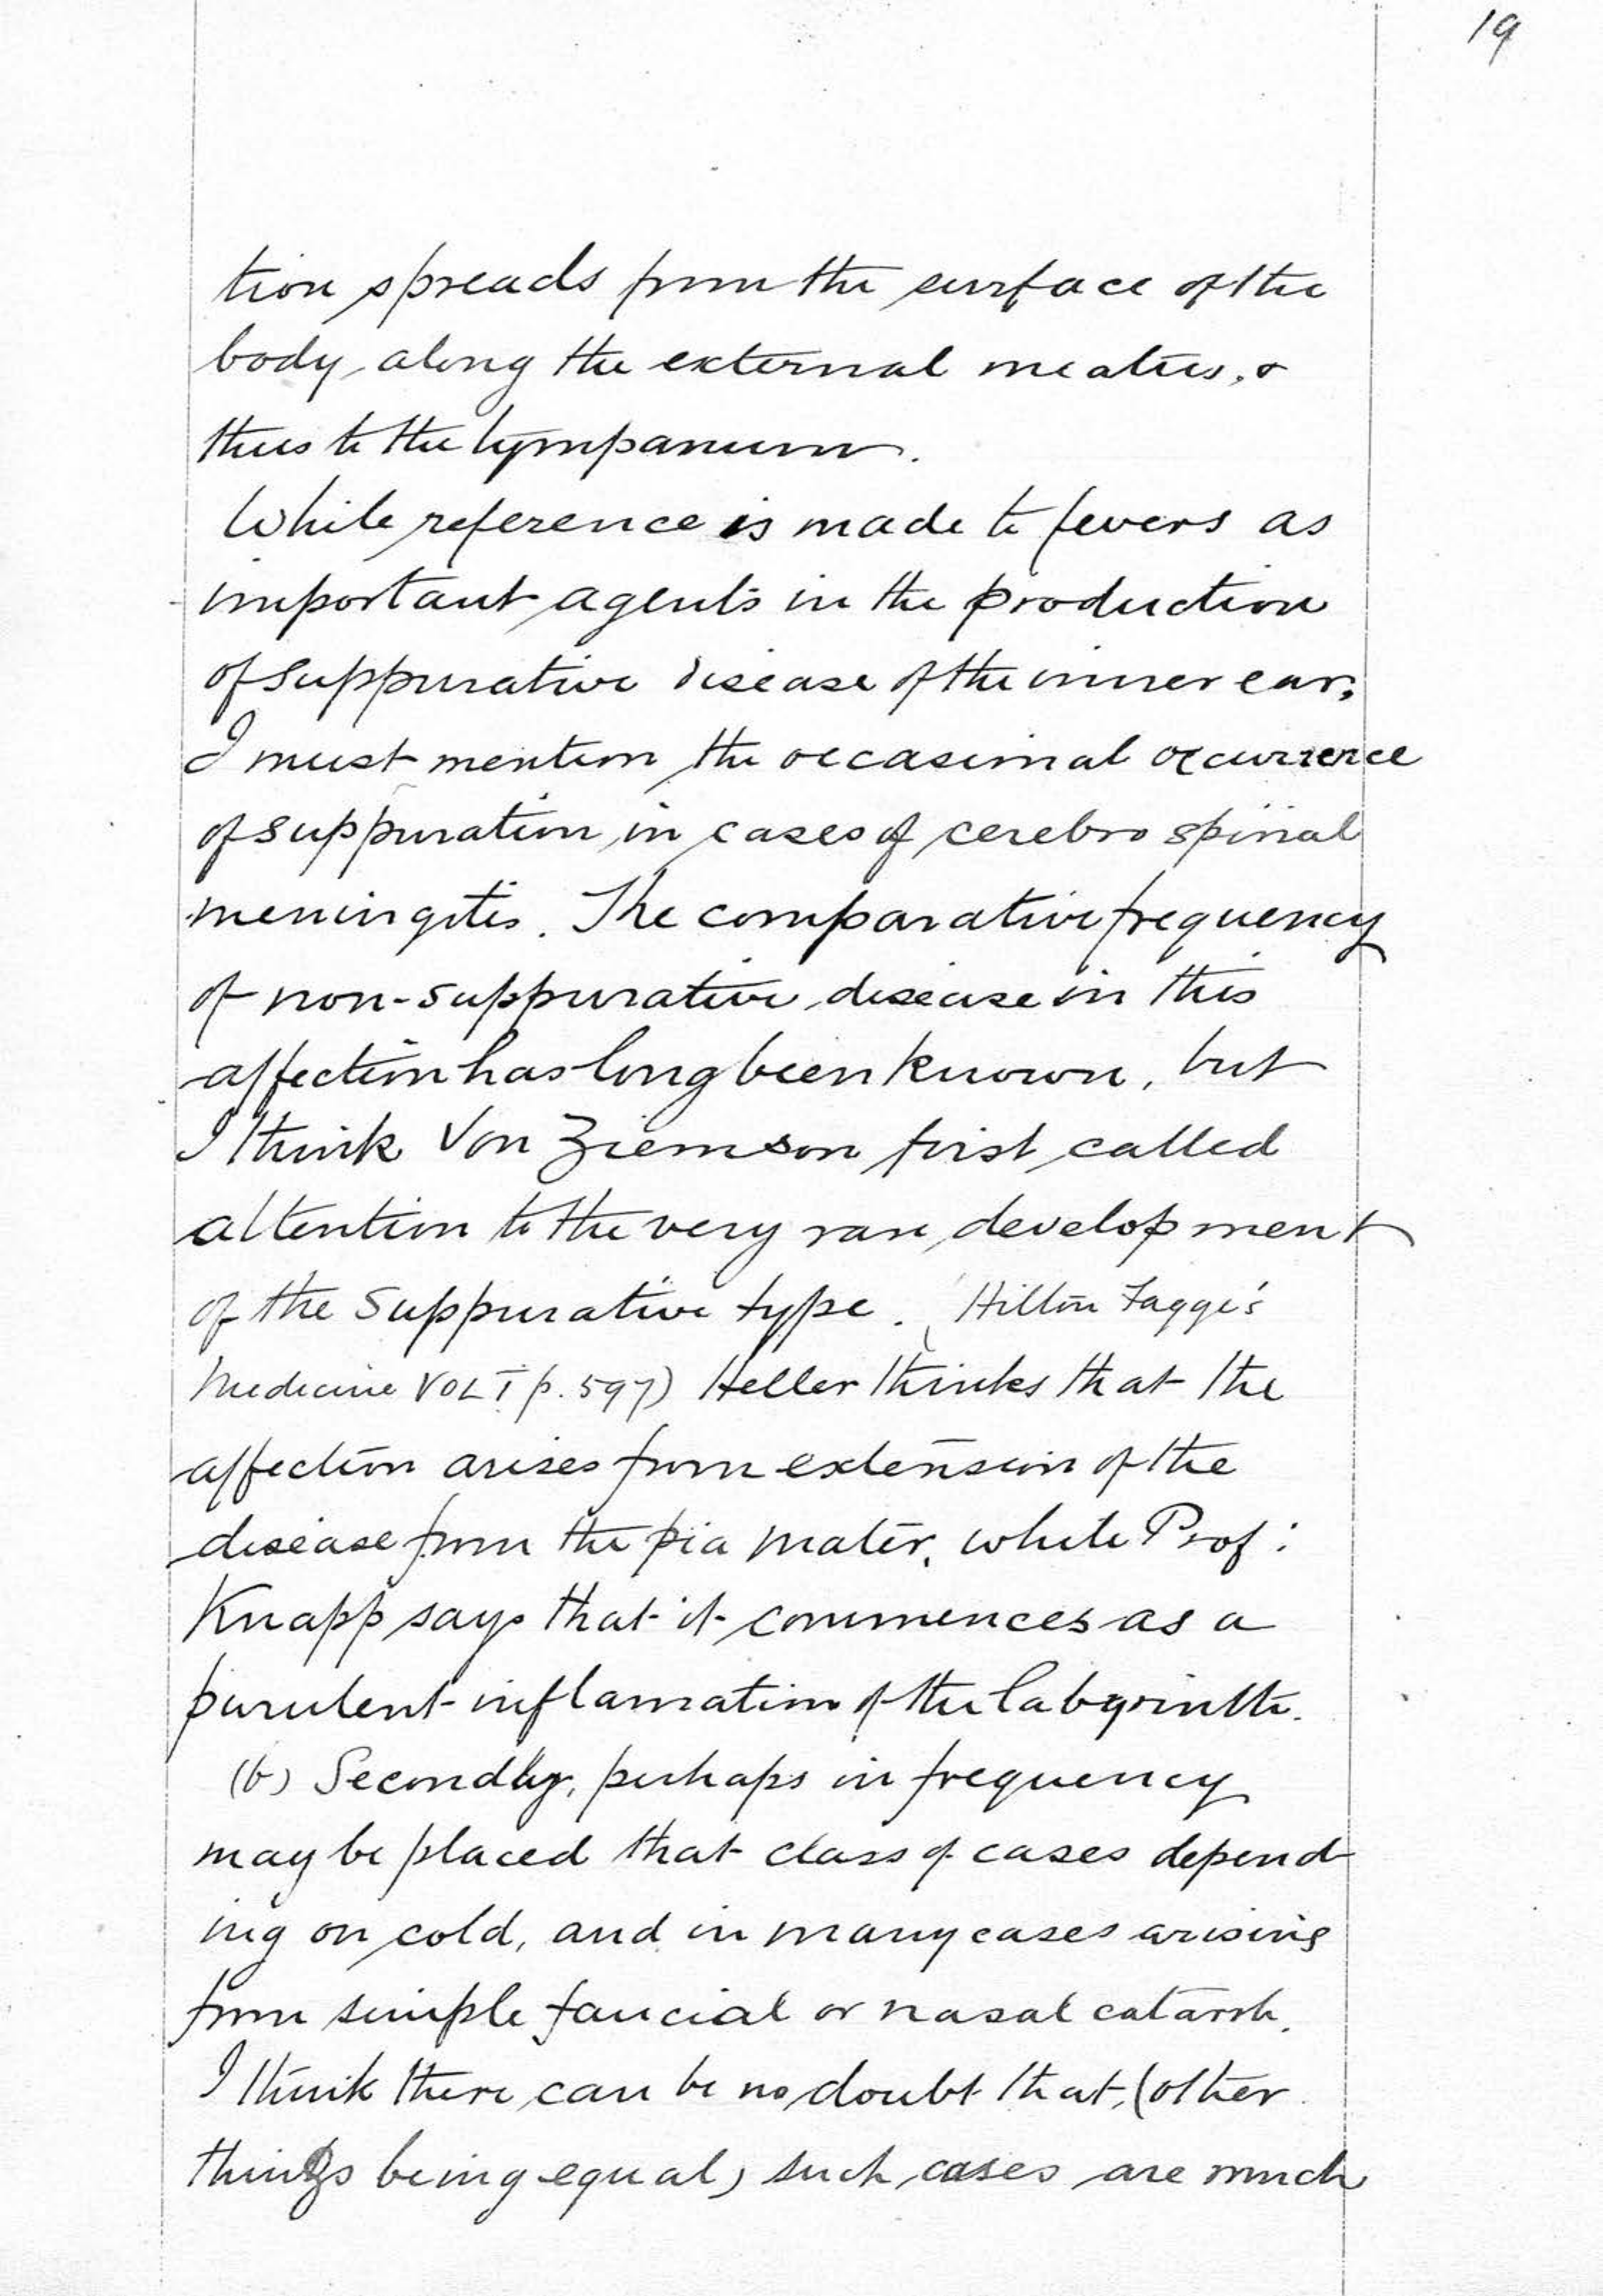 19
tion spreads from the surface of the
body, along the external meatus, &
thus to the tympanum.
While reference is made to fevers as
important agents in the production
of suppurative disease of the inner ear,
I must mention the occasional occurrence
of suppuration in cases of cerebro spinal
meningitis. The comparative frequency
of non-suppurative disease in this
affection has long been known, but
I think Von Ziemson first called
attention to the very rare development
of the suppurative type. (Hilton Fagge's
Medicine VOL I p. 597) Heller thinks that the
affection arises from extension of the
disease from the pia mater, while Prof:
Knapp says that it commences as a
purulent inflamation of the labyrinth.
(b) Secondly, perhaps in frequency
may be placed that class of cases depend
ing on cold, and in many cases arising
from simple faucial or nasal catarrh.
I think there can be no doubt that, (other
things being equal) such cases are much